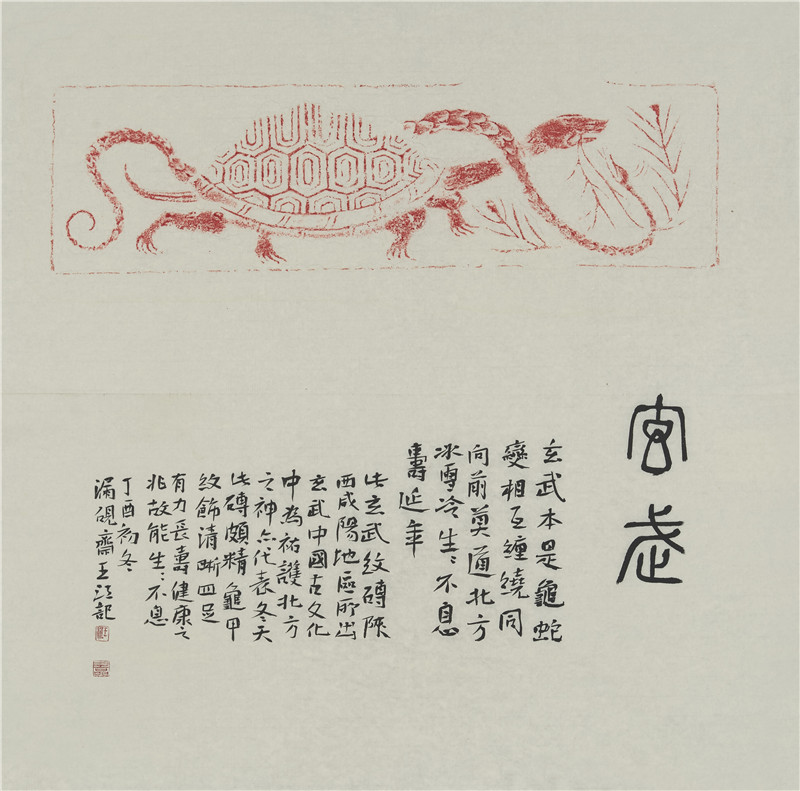 玄武
玄武本是龜蛇
變相互纏繞同
向前莫道北方
冰雪冷生〻不息
壽延年
此玄武紋磚陝
西咸陽地區所出
玄武中國古文化
中為祐護北方
之神亦代表冬天
此磚頗精龜甲
紋飾清晰四足
有力長壽健康之
兆故能生〻不息
丁酉初冬
漏硯齋王江記